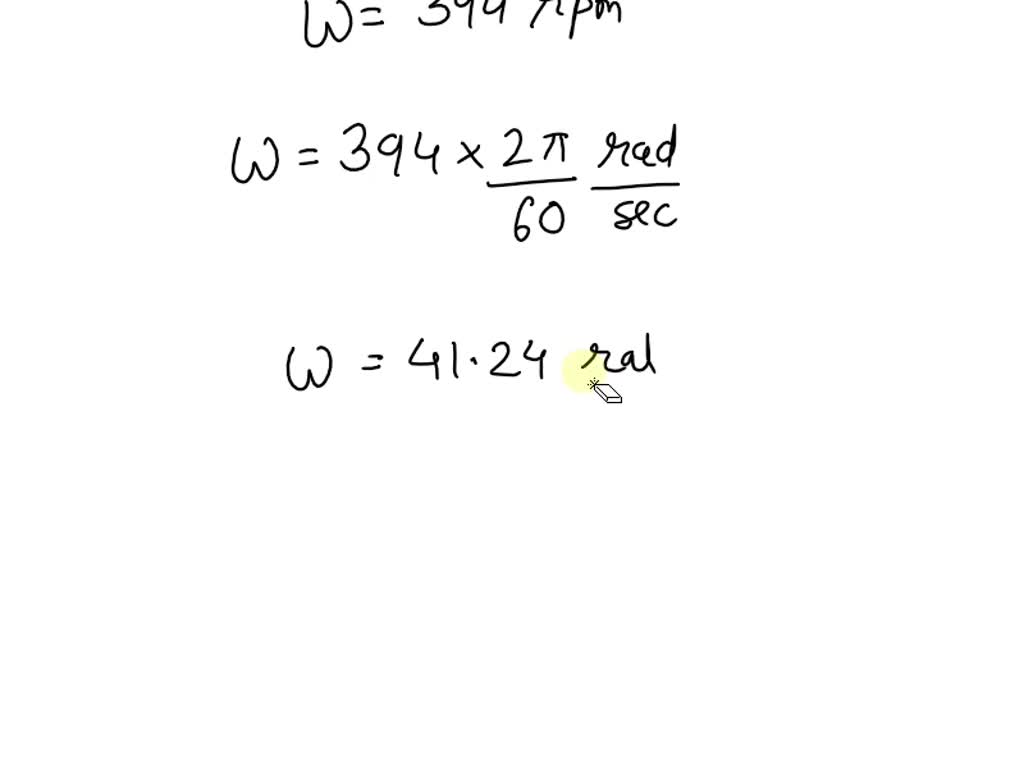 ω = 394 rpm
ω = 394 × 2π/60 rad/sec
ω = 41.24 rad